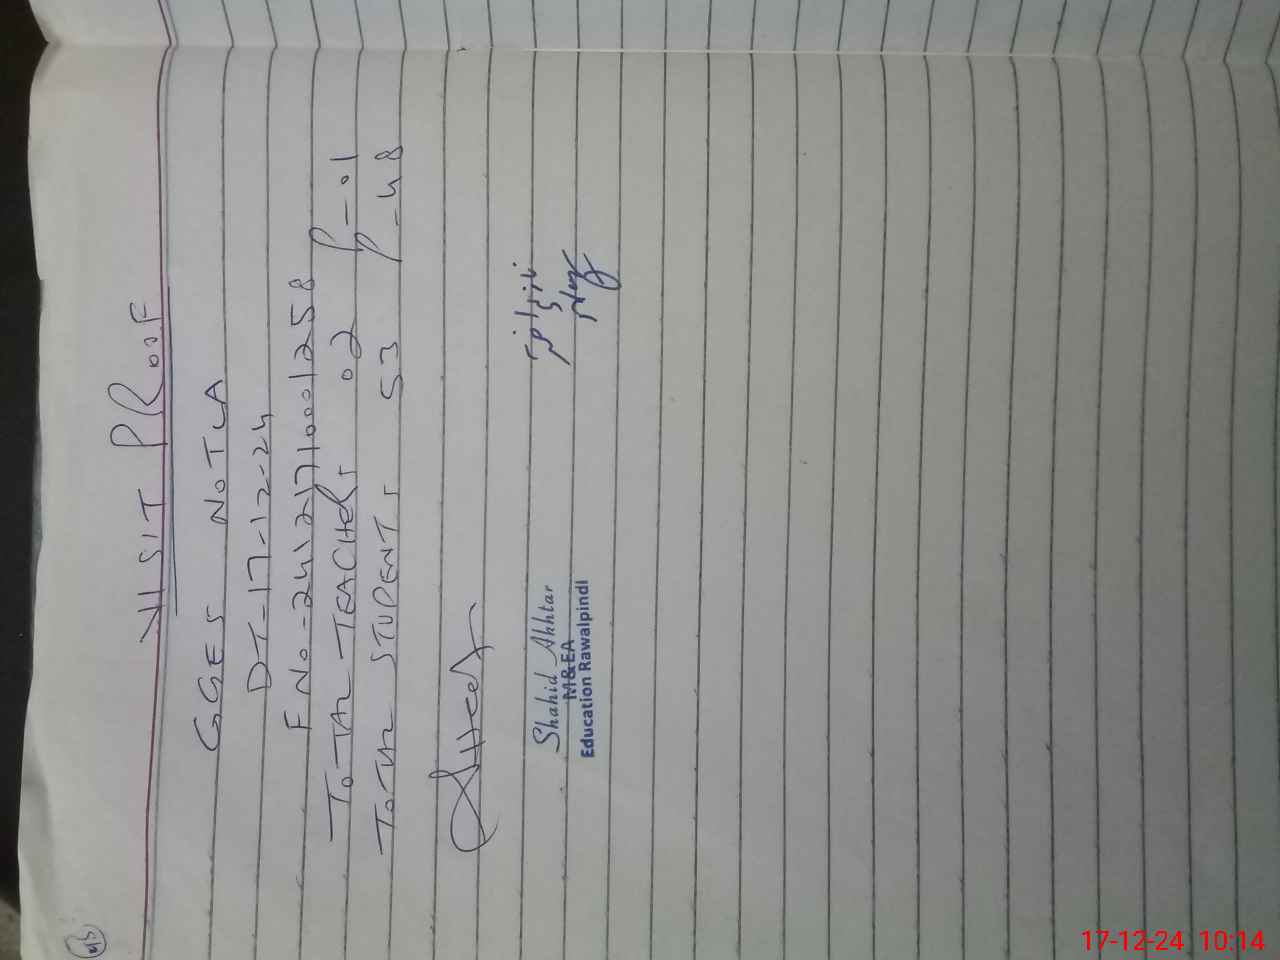 VISIT PROOF
GGES NOTLA
DT-17-12-24
F No-24121710001258
TOTAL TEACHER, 02 P-01
TOTAL STUDENT, 53 P-48
Shahid Akhtar
M&EA
Education Rawalpindi
17-12-24 10:14